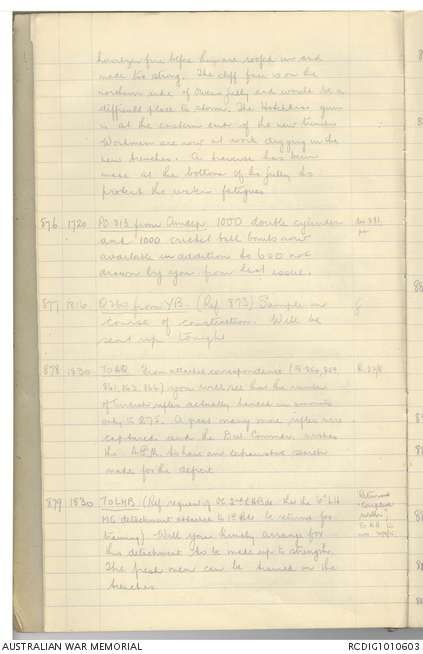 howitzer fire before they are roofed in and
made too strong. The cliff face is on the
northern side of Owens gully and would be a
difficult place to storm. The Hotchkiss gun
is at the eastern end of the new trench
Workmen are now at work digging in the
new trenches. A traverse has been
made at the bottom of the gully to
protect the water fatigues
876 1720 PO 313 from Andep 1000 double cylinder
and 1000 cricket ball bombs now
available in addition to 600 not
drawn by you from last issue.
877 1816 from YB. (Ref 873) Sample in
course of construction. Will be
sent up tonight
878 1830 TO AQ From attached correspondence
you will see that the number
of Turkish rifles actually handed in
only is 275. A great many more rifles were
captured and the Divl Commdr wishes
the to have an exhaustive search
made for the deficit
879 1830 TO LHB (Ref request of OC 2nd LHB that the 6th LH
MG detachment attached to 1st Bde be returned for
training) Will you kindly arrange for
this detachment to be made up to strength.
The fresh men can be trained in the
trenches
AUSTRALIAN WAR MEMORIAL
RCDIG1010603